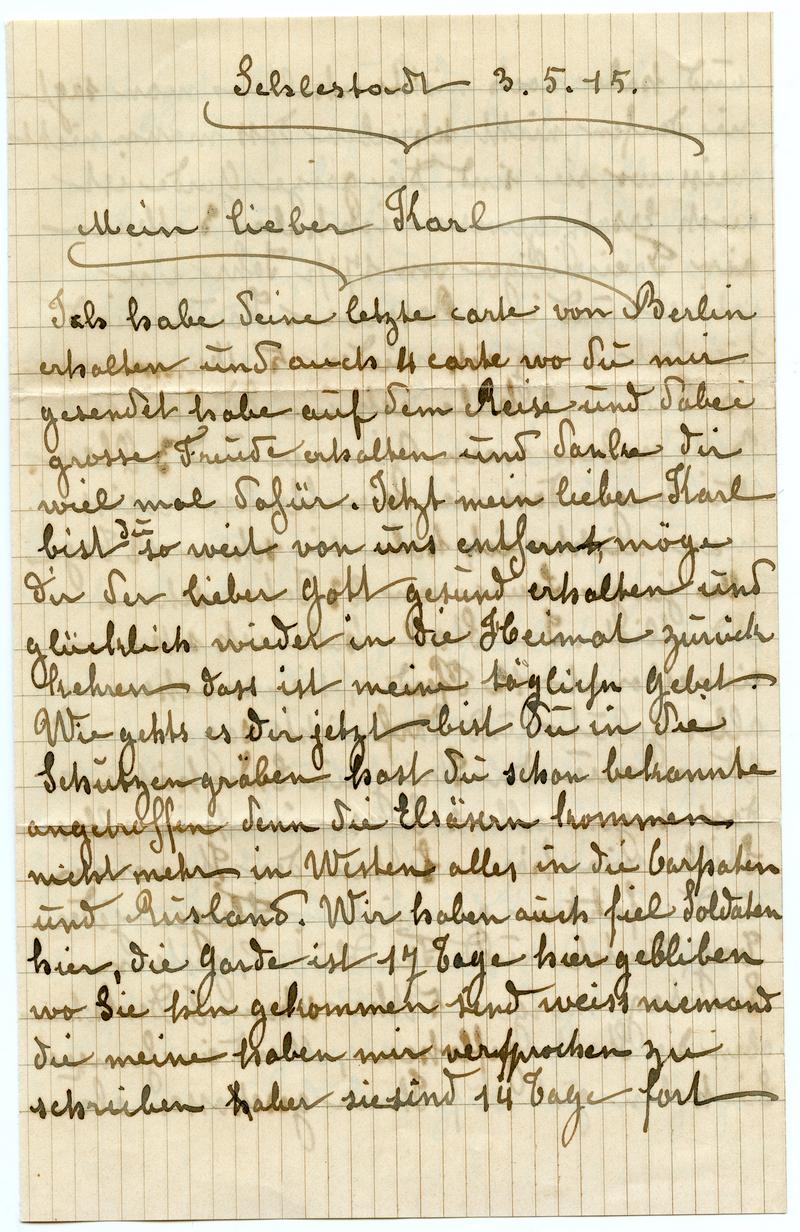 Schlestadt 3. 5. 15.
Mein lieber Karl
Ich habe deine letzte carte von Berlin
erhalten und auch 4 carte wo du mir
gesendet habe auf dem Reise und dabei
grosse Freude erhalten und danke dir
viel mal dafür. Jetzt mein lieber Karl
bist du so weit von uns entfernt, möge
dir der lieber Gott gesund erhalten und
glücklich wieder in die Heimat zurück
kehren dass ist meine täglichn Gebet.
Wie gehts es dir jetzt bist Du in die
Schutzengräben hast du schon bekannte
angetroffen denn die Elsäsern kommen
nicht mehr in Westen alles in die Carpaten
und Rusland. Wir haben auch fiel Soldaten
hier, die Garde ist 17 Tage hier gebliben
wo Sie hin gekommen sind weiss niemand
die meine haben mir versprochen zu
schreiben haber sie sind 14 Tage fort